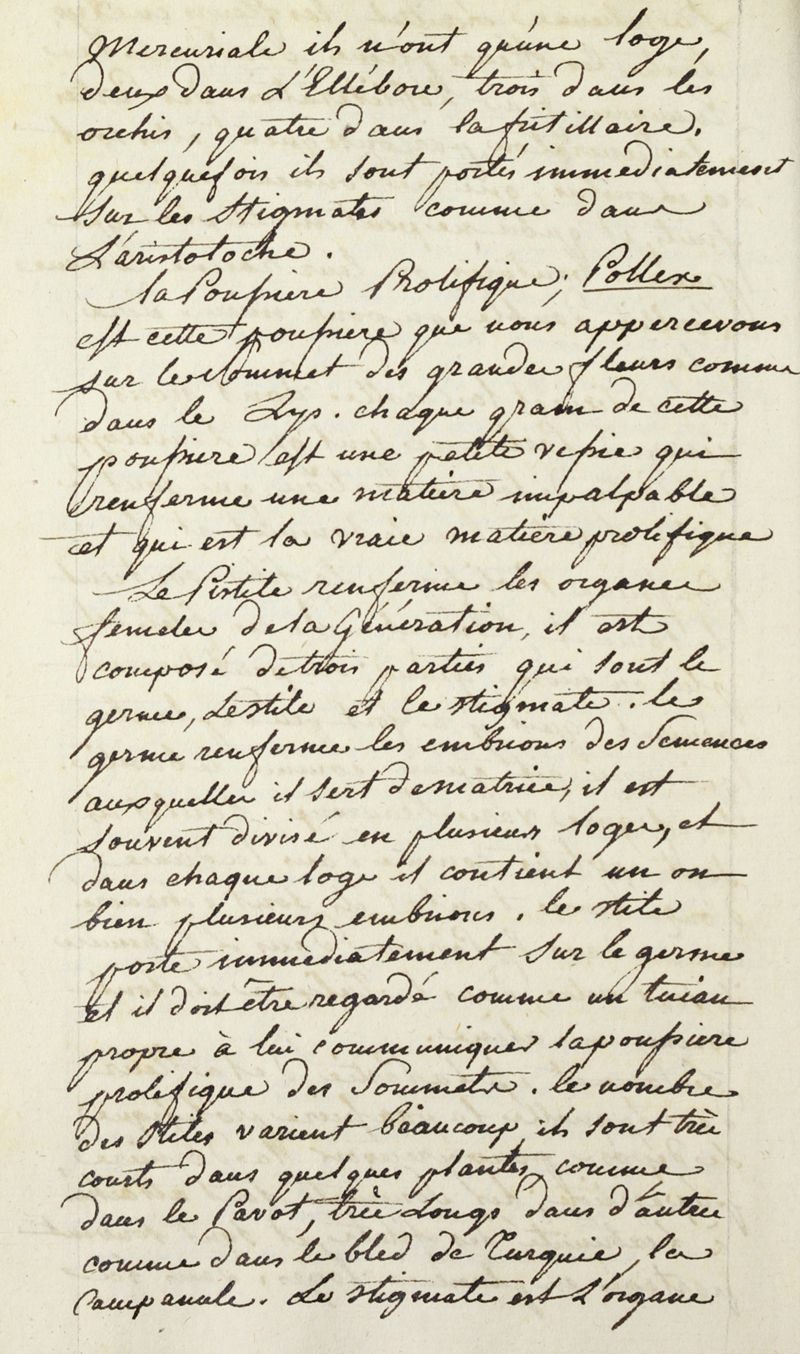 Mercuriale ils n'ont qu'une loge,
deux dans L'Ellébore, trois dans les
orchis, quatre dans la fritillaire.
quelquefois ils sont portés immediatement
sur les Stigmates comme dans
L'aristoloche.
la Poussiere Prolifique; Pollen
est cette poussiere que nous appercevons
sur le sommet des grandes fleurs comme
dans le Lys. chaque grain de cette
poussiere est une petite vessie qui
renferme une matiere impalpable
et qui est la vraie matiere prolifique
Le Pistile renferme les organes
femeles de la Génération, il est
composé de trois parties qui sont le
germe, Le stile et le stigmate. le
germe renferme les embrions des Semences
auxquelles il sert de matrice, il est
souvent divisé en plusieurs loges, et
dans chaque loge il contient un ou
bien plusieurs embrions. le stile
porte immediatement sur le germe
et il doit être regardé comme un tuiau
propre à lui communiquer la poussiere
prolifique des Sommets. le nombre
des Stiles varient beaucoup, ils sont très
courts dans quelques plantes, comme
dans le Pavot, très Longs dans d'autres
comme dans le bled de Turquie, la
Campanule. Le stigmate est L'organe